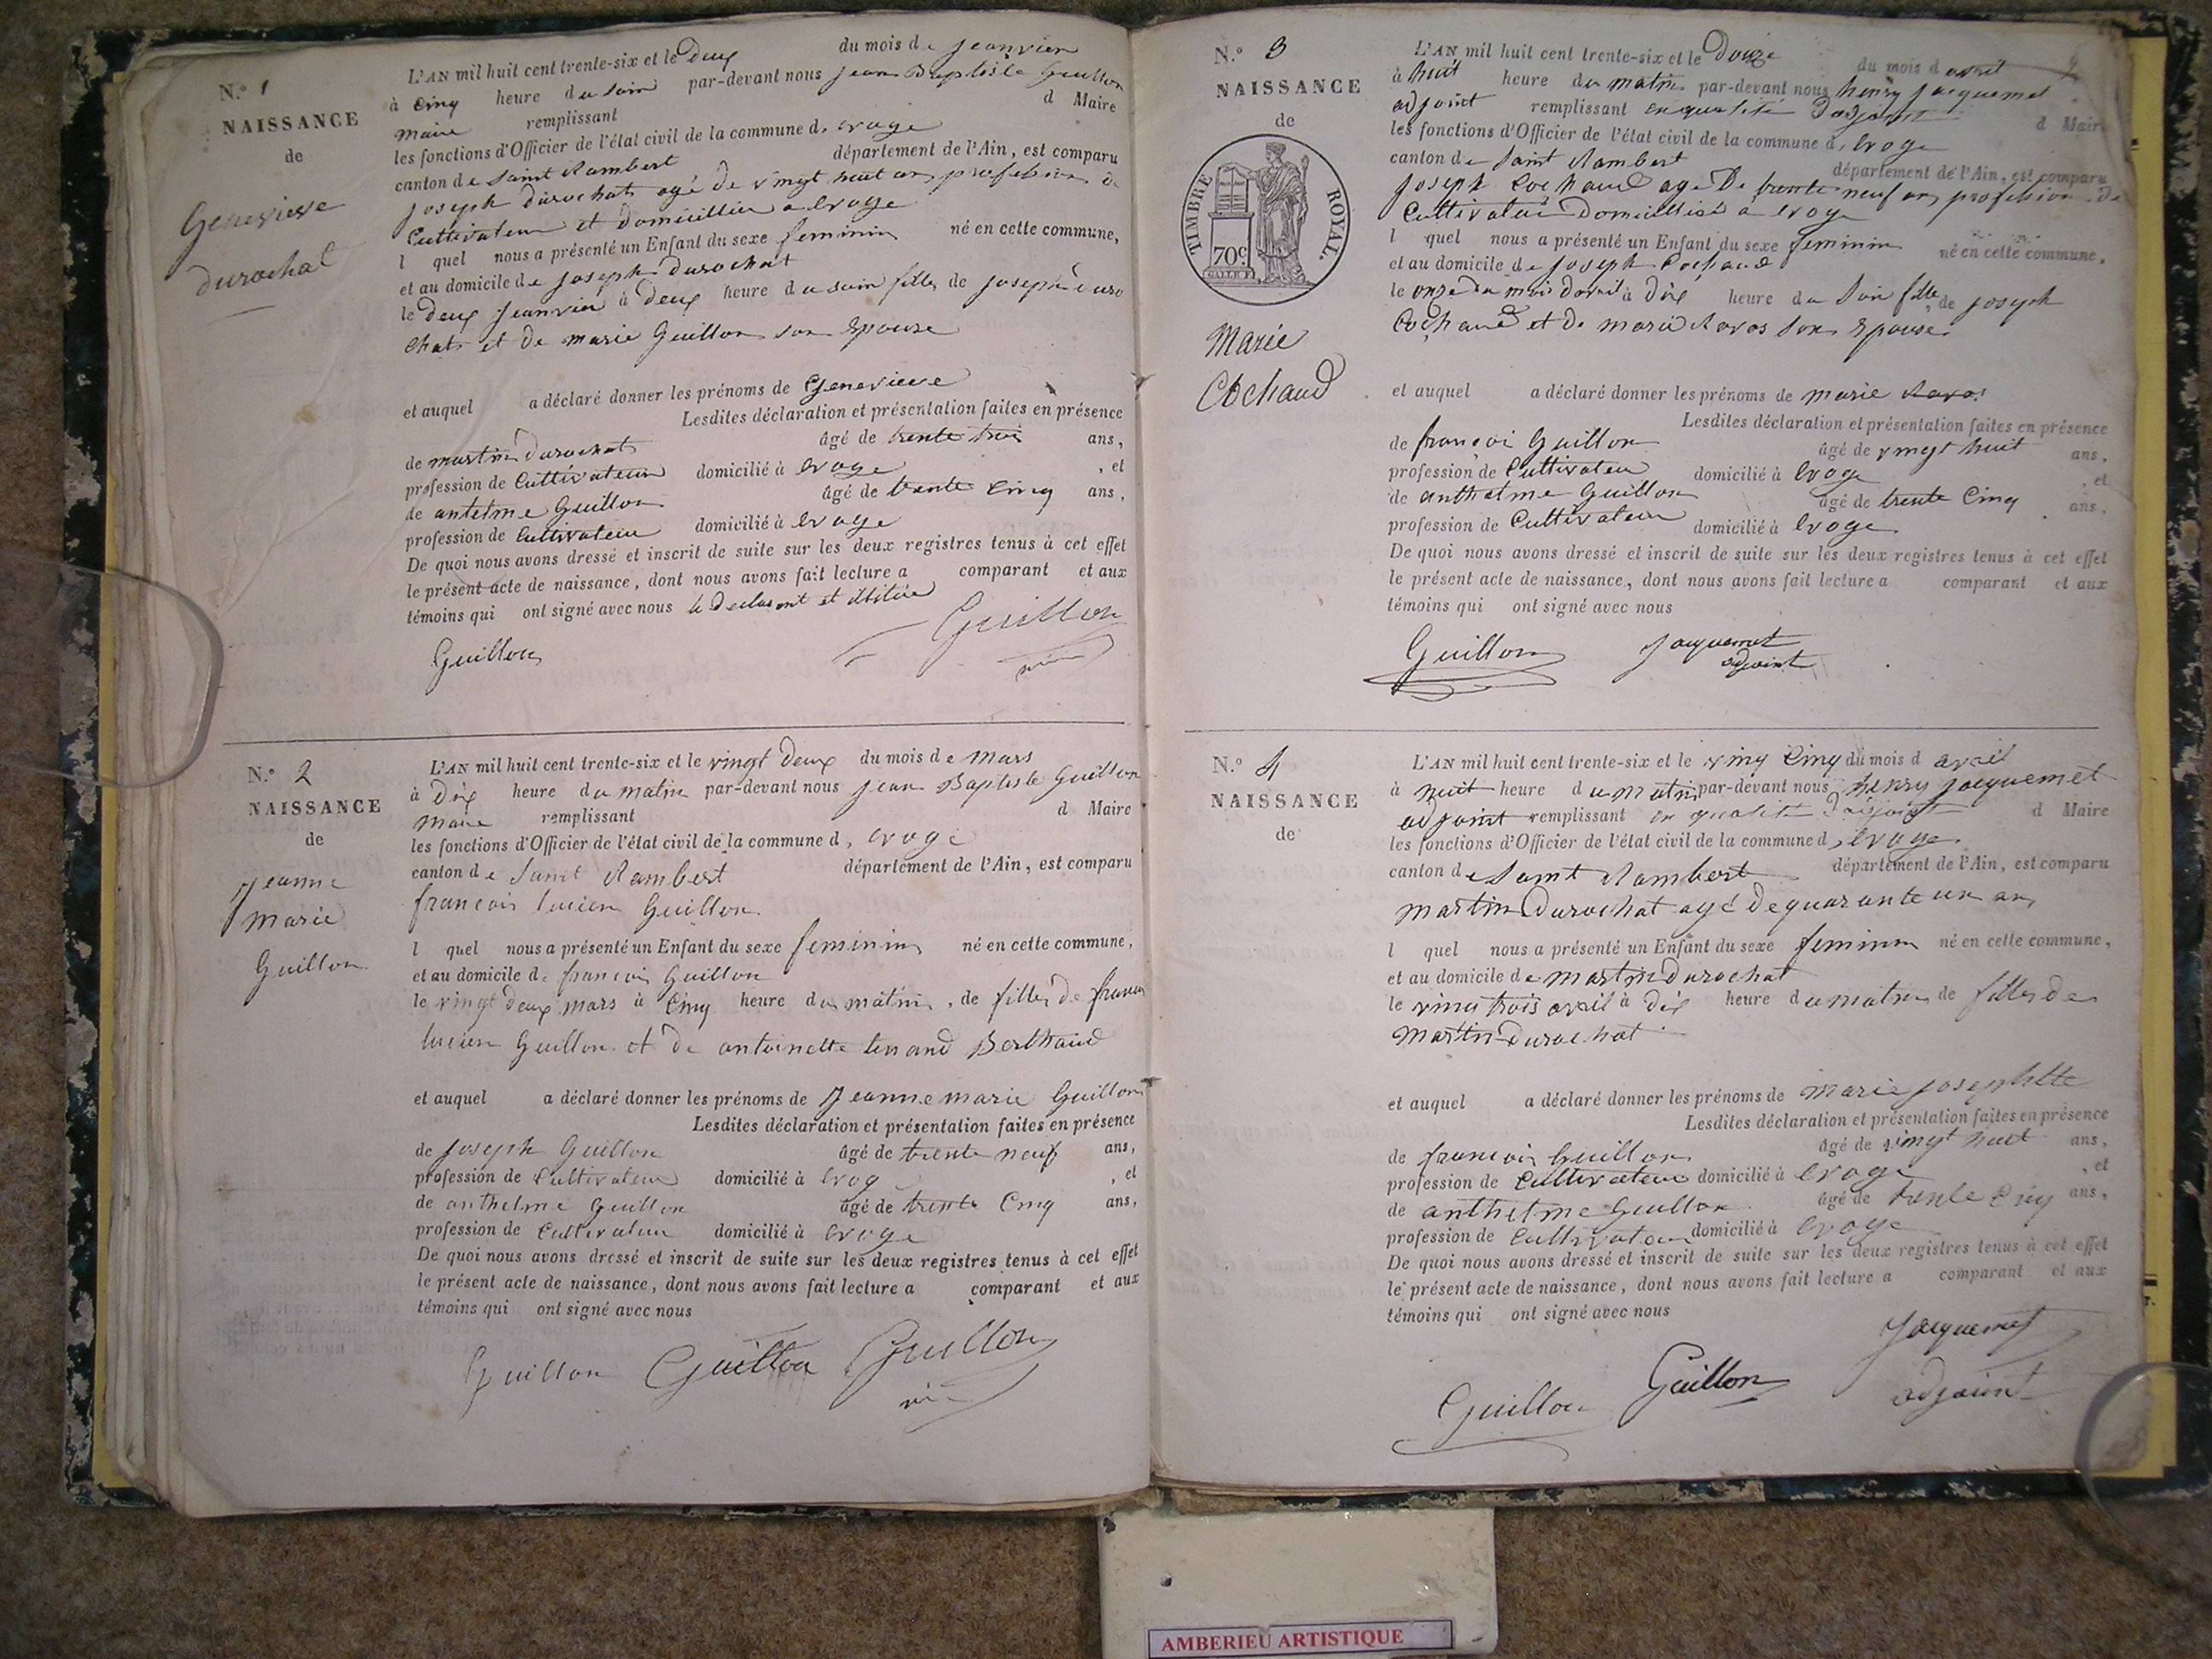 N.º 1
NAISSANCE
de
Genevieve
durochat
L'AN mil huit cent trente-six et le deux du mois de jeanvier
à cinq heure du soir par-devant nous jean Baptiste Guillon
maire remplissant d Maire
les fonctions d'Officier de l'état civil de la commune d, evoge
canton de Saint Rambert département de l'Ain, est comparu
joseph durochat agé de vingt huit an profession de
Cultivateur et domicillier a evoge
l quel nous a présenté un Enfant du sexe feminin né en cette commune,
et au domicile de joseph durochat
le deux jeanvier à deux heure du soir fille de joseph duro
chat et de marie Guillon son Epouse
et auquel a déclaré donner les prénoms de Genevieve
Lesdites déclaration et présentation faites en présence
de martin durochat âgé de trente trois ans,
profession de Cultivateur domicilié à evoge , et
de antelme Guillon âgé de trente cinq ans,
profession de Cultivateur domicilié à evoge
De quoi nous avons dressé et inscrit de suite sur les deux registres tenus à cet effet
le présent acte de naissance, dont nous avons fait lecture a comparant et aux
témoins qui ont signé avec nous le declarant et
Guillon
Guillon
N.º 2
NAISSANCE
de
Jeanne
marie
Guillon
L'AN mil huit cent trente-six et le vingt deux du mois de mars
à dix heure du matin par-devant nous jean Baptiste Guillon
maire remplissant d Maire
les fonctions d'Officier de l'état civil de la commune d, evoge
canton de Saint Rambert département de l'Ain, est comparu
francois lucien Guillon
l quel nous a présenté un Enfant du sexe feminin né en cette commune,
et au domicile de francois Guillon
le vingt deux mars à cinq heure du matin, de fille de francois
lucien Guillon et de antoinette tenand Berthaud
et auquel a déclaré donner les prénoms de Jeanne marie Guillon
Lesdites déclaration et présentation faites en présence
de joseph Guillon âgé de trente neuf ans,
profession de Cultivateur domicilié à evoge , et
de anthelme Guillon âgé de trente Cinq ans,
profession de Cultivateur domicilié à evoge
De quoi nous avons dressé et inscrit de suite sur les deux registres tenus à cet effet
le présent acte de naissance, dont nous avons fait lecture a comparant et aux
témoins qui ont signé avec nous
Guillon Guillon Guillon
N.º 3
NAISSANCE
de
TIMBRE ROYAL.
70c.
Marie
Cochaud
L'AN mil huit cent trente-six et le douze du mois d avril
à huit heure du matin par-devant nous henry jacquemet
adjoint remplissant en qualité d'adjoint d Maire
les fonctions d'Officier de l'état civil de la commune d, evoge
canton de Saint Rambert département de l'Ain, est comparu
joseph Cochaud age De trente neuf an profession de
Cultivateur Domicillié à evoge
l quel nous a présenté un Enfant du sexe feminin né en cette commune,
et au domicile de joseph Cochaud
le onze du mois davril à dix heure du soir fille de joseph
Cochaud et de marie Ravos son Epouse
et auquel a déclaré donner les prénoms de marie Ravos
Lesdites déclaration et présentation faites en présence
de françois Guillon âgé de vingt huit ans,
profession de Cultivateur domicilié à evoge , et
de anthelme Guillon âgé de trente Cinq ans,
profession de Cultivateur domicilié à evoge
De quoi nous avons dressé et inscrit de suite sur les deux registres tenus à cet effet
le présent acte de naissance, dont nous avons fait lecture a comparant et aux
témoins qui ont signé avec nous
Guillon jacquemet
adjoint
N.º 4
NAISSANCE
de
L'AN mil huit cent trente-six et le ving Cinq du mois d avril
à huit heure du matin par-devant nous henry jacquemet
adjoint remplissant en qualité d'adjoint d Maire
les fonctions d'Officier de l'état civil de la commune d, evoge
canton de Saint Rambert département de l'Ain, est comparu
martin Durochat agé de quarante un an
l quel nous a présenté un Enfant du sexe feminin né en cette commune,
et au domicile de martin durochat
le ving trois avril à dix heure du matin de fille de
martin durochat
et auquel a déclaré donner les prénoms de marie josephtte
Lesdites déclaration et présentation faites en présence
de francois Guillon âgé de vingt huit ans,
profession de Cultivateur domicilié à evoge , et
de anthelme Guillon âgé de trente Cinq ans,
profession de Cultivateur domicilié à evoge
De quoi nous avons dressé et inscrit de suite sur les deux registres tenus à cet effet
le présent acte de naissance, dont nous avons fait lecture a comparant et aux
témoins qui ont signé avec nous
Guillon Guillon Jacquemet
adjoint
AMBERIEU ARTISTIQUE